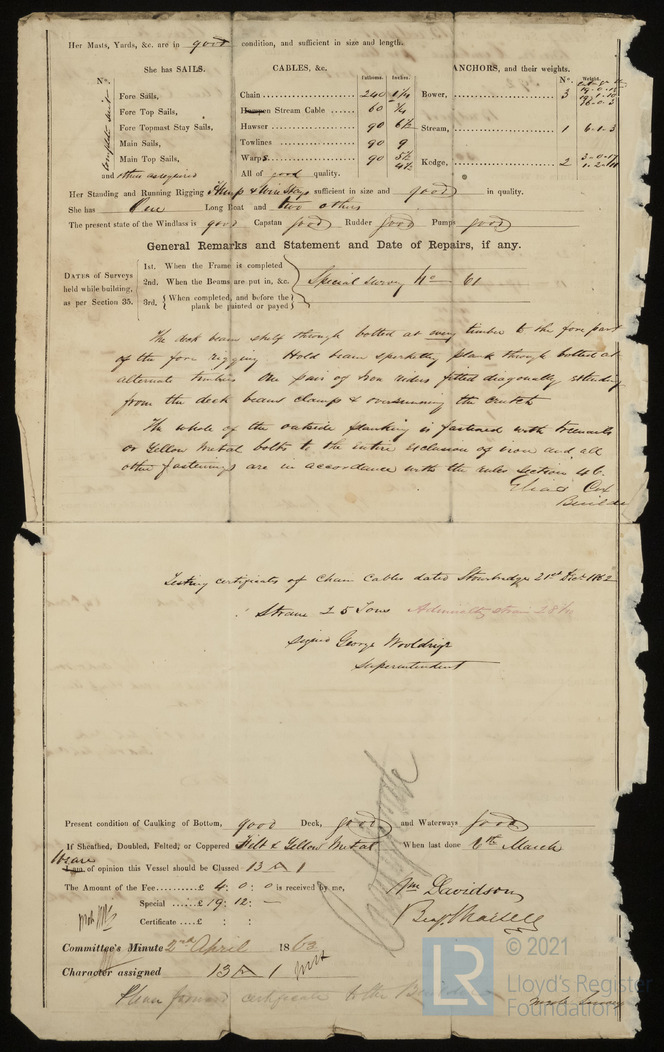 Her Masts, Yards, &c. are in good condition, and sufficient in size and length.
She has SAILS.
CABLES, &c.
Fathoms.
Inches.
ANCHORS, and their weights.
No.
Weight.
No.
complete suit
Fore Sails,
Fore Top Sails,
Fore Topmast Stay Sails,
Main Sails,
Main Top Sails,
and others as required
Chain 240 1 1/4
Hempen Stream Cable 60 3/4
Hawser 90 6 1/2
Towlines 90 9
Warps 90 5 1/2
4 1/2
All of good quality.
Bower, 3
Stream, 1 6-1-3
Kedge, 2
Her Standing and Running Rigging Hemp & Wire sufficient in size and good in quality.
She has One Long Boat and two others
The present state of the Windlass is good Capstan good Rudder good Pumps good
General Remarks and Statement and Date of Repairs, if any.
DATES of Surveys held while building, as per Section 35.
1st. When the Frame is completed
2nd. When the Beams are put in, &c.
3rd. { When completed, and before the plank be painted or payed }
Special survey No 61
The deck beam shelf through bolted at every timber to the fore part
of the fore rigging Hold beam spirketting plank through bolted at
alternate timbers One pair of Iron riders fitted diagonally extending
from the deck beams clamps & overrunning the crutch
The whole of the outside planking is fastened with treenails
or Yellow Metal bolts to the entire exclusion of iron and all
other fastenings are in accordance with the rules section 46.
Elias Cox
Builder
Testing certificates of Chain Cables dated Stourbridge 21st Decr 1862
Strain 25 Tons Admiralty strain 28 1/8
Signed George Wooldrige
Superintendent
Present condition of Caulking of Bottom, good Deck, good and Waterways good
If Sheathed, Doubled, Felted, or Coppered Felt & Yellow Metal When last done 6th March
We are
I am of opinion this Vessel should be Classed 13 A 1
The Amount of the Fee £ 4 : 0 : 0 is received by me,
Special £ 19 : 12 : —
Certificate £ : :
Wm Davidson
Benj. Martell
Committee's Minute 2nd April 1863
Character assigned 13 A 1
Please forward certificate to the Builder
© 2021
LR
Lloyd's Register
Foundation